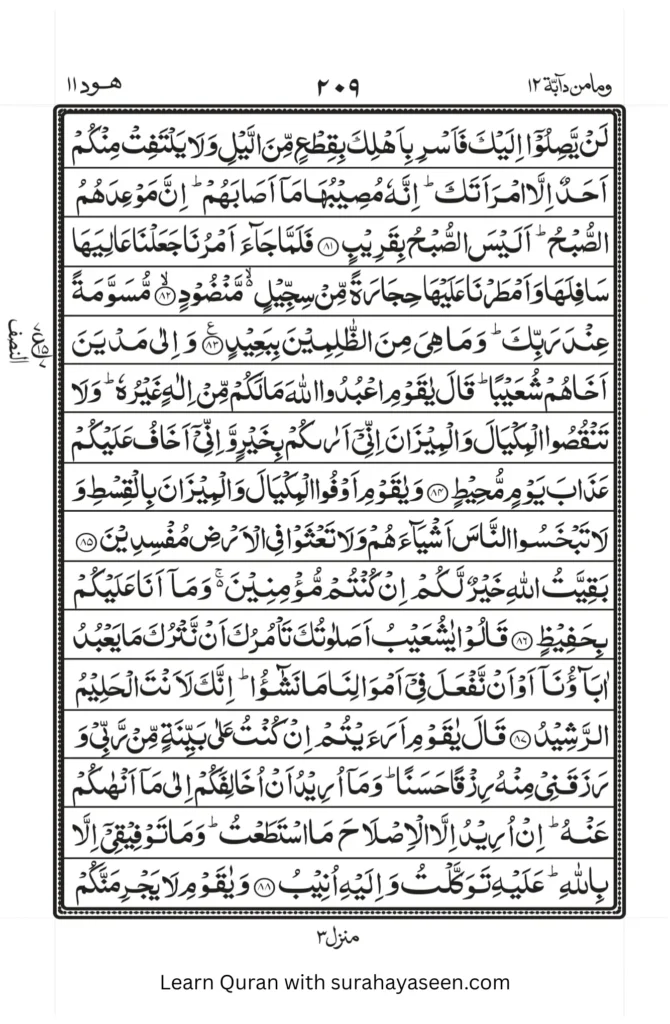 ومامن دآبّة ١٢
٢٠٩
هود ١١
لَنْ يَّصِلُوْۤا اِلَيْكَ فَاَسْرِ بِاَهْلِكَ بِقِطْعٍ مِّنَ الَّيْلِ وَلَا يَلْتَفِتْ مِنْكُمْ
اَحَدٌ اِلَّا امْرَاَتَكَ ؕ اِنَّهٗ مُصِيْبُهَا مَاۤ اَصَابَهُمْ ؕ اِنَّ مَوْعِدَهُمُ
الصُّبْحُ ؕ اَلَيْسَ الصُّبْحُ بِقَرِيْبٍ ﴿٨١﴾ فَلَمَّا جَآءَ اَمْرُنَا جَعَلْنَا عَالِيَهَا
سَافِلَهَا وَاَمْطَرْنَا عَلَيْهَا حِجَارَةً مِّنْ سِجِّيْلٍ ۙ۬ مَّنْضُوْدٍ ﴿ۙ٨٢﴾ مُّسَوَّمَةً
عِنْدَ رَبِّكَ ؕ وَمَا هِىَ مِنَ الظّٰلِمِيْنَ بِبَعِيْدٍ ﴿٨٣﴾ ع وَاِلٰى مَدْيَنَ
النصف
اَخَاهُمْ شُعَيْبًا ؕ قَالَ يٰقَوْمِ اعْبُدُوا اللّٰهَ مَا لَكُمْ مِّنْ اِلٰهٍ غَيْرُهٗ ؕ وَلَا
تَنْقُصُوا الْمِكْيَالَ وَالْمِيْزَانَ اِنِّىْۤ اَرٰىكُمْ بِخَيْرٍ وَّاِنِّىْۤ اَخَافُ عَلَيْكُمْ
عَذَابَ يَوْمٍ مُّحِيْطٍ ﴿٨٤﴾ وَيٰقَوْمِ اَوْفُوا الْمِكْيَالَ وَالْمِيْزَانَ بِالْقِسْطِ وَ
لَا تَبْخَسُوا النَّاسَ اَشْيَآءَهُمْ وَلَا تَعْثَوْا فِى الْاَرْضِ مُفْسِدِيْنَ ﴿٨٥﴾
بَقِيَّتُ اللّٰهِ خَيْرٌ لَّكُمْ اِنْ كُنْتُمْ مُّؤْمِنِيْنَ ۬ۚ وَمَاۤ اَنَا عَلَيْكُمْ
بِحَفِيْظٍ ﴿٨٦﴾ قَالُوْا يٰشُعَيْبُ اَصَلٰوتُكَ تَاْمُرُكَ اَنْ نَّتْرُكَ مَا يَعْبُدُ
اٰبَآؤُنَاۤ اَوْ اَنْ نَّفْعَلَ فِىْۤ اَمْوَالِنَا مَا نَشٰٓؤُا ؕ اِنَّكَ لَاَنْتَ الْحَلِيْمُ
الرَّشِيْدُ ﴿٨٧﴾ قَالَ يٰقَوْمِ اَرَءَيْتُمْ اِنْ كُنْتُ عَلٰى بَيِّنَةٍ مِّنْ رَّبِّىْ وَ
رَزَقَنِىْ مِنْهُ رِزْقًا حَسَنًا ؕ وَمَاۤ اُرِيْدُ اَنْ اُخَالِفَكُمْ اِلٰى مَاۤ اَنْهٰىكُمْ
عَنْهُ ؕ اِنْ اُرِيْدُ اِلَّا الْاِصْلَاحَ مَا اسْتَطَعْتُ ؕ وَمَا تَوْفِيْقِىْۤ اِلَّا
بِاللّٰهِ ؕ عَلَيْهِ تَوَكَّلْتُ وَاِلَيْهِ اُنِيْبُ ﴿٨٨﴾ وَيٰقَوْمِ لَا يَجْرِمَنَّكُمْ
منزل ٣
Learn Quran with surahayaseen.com